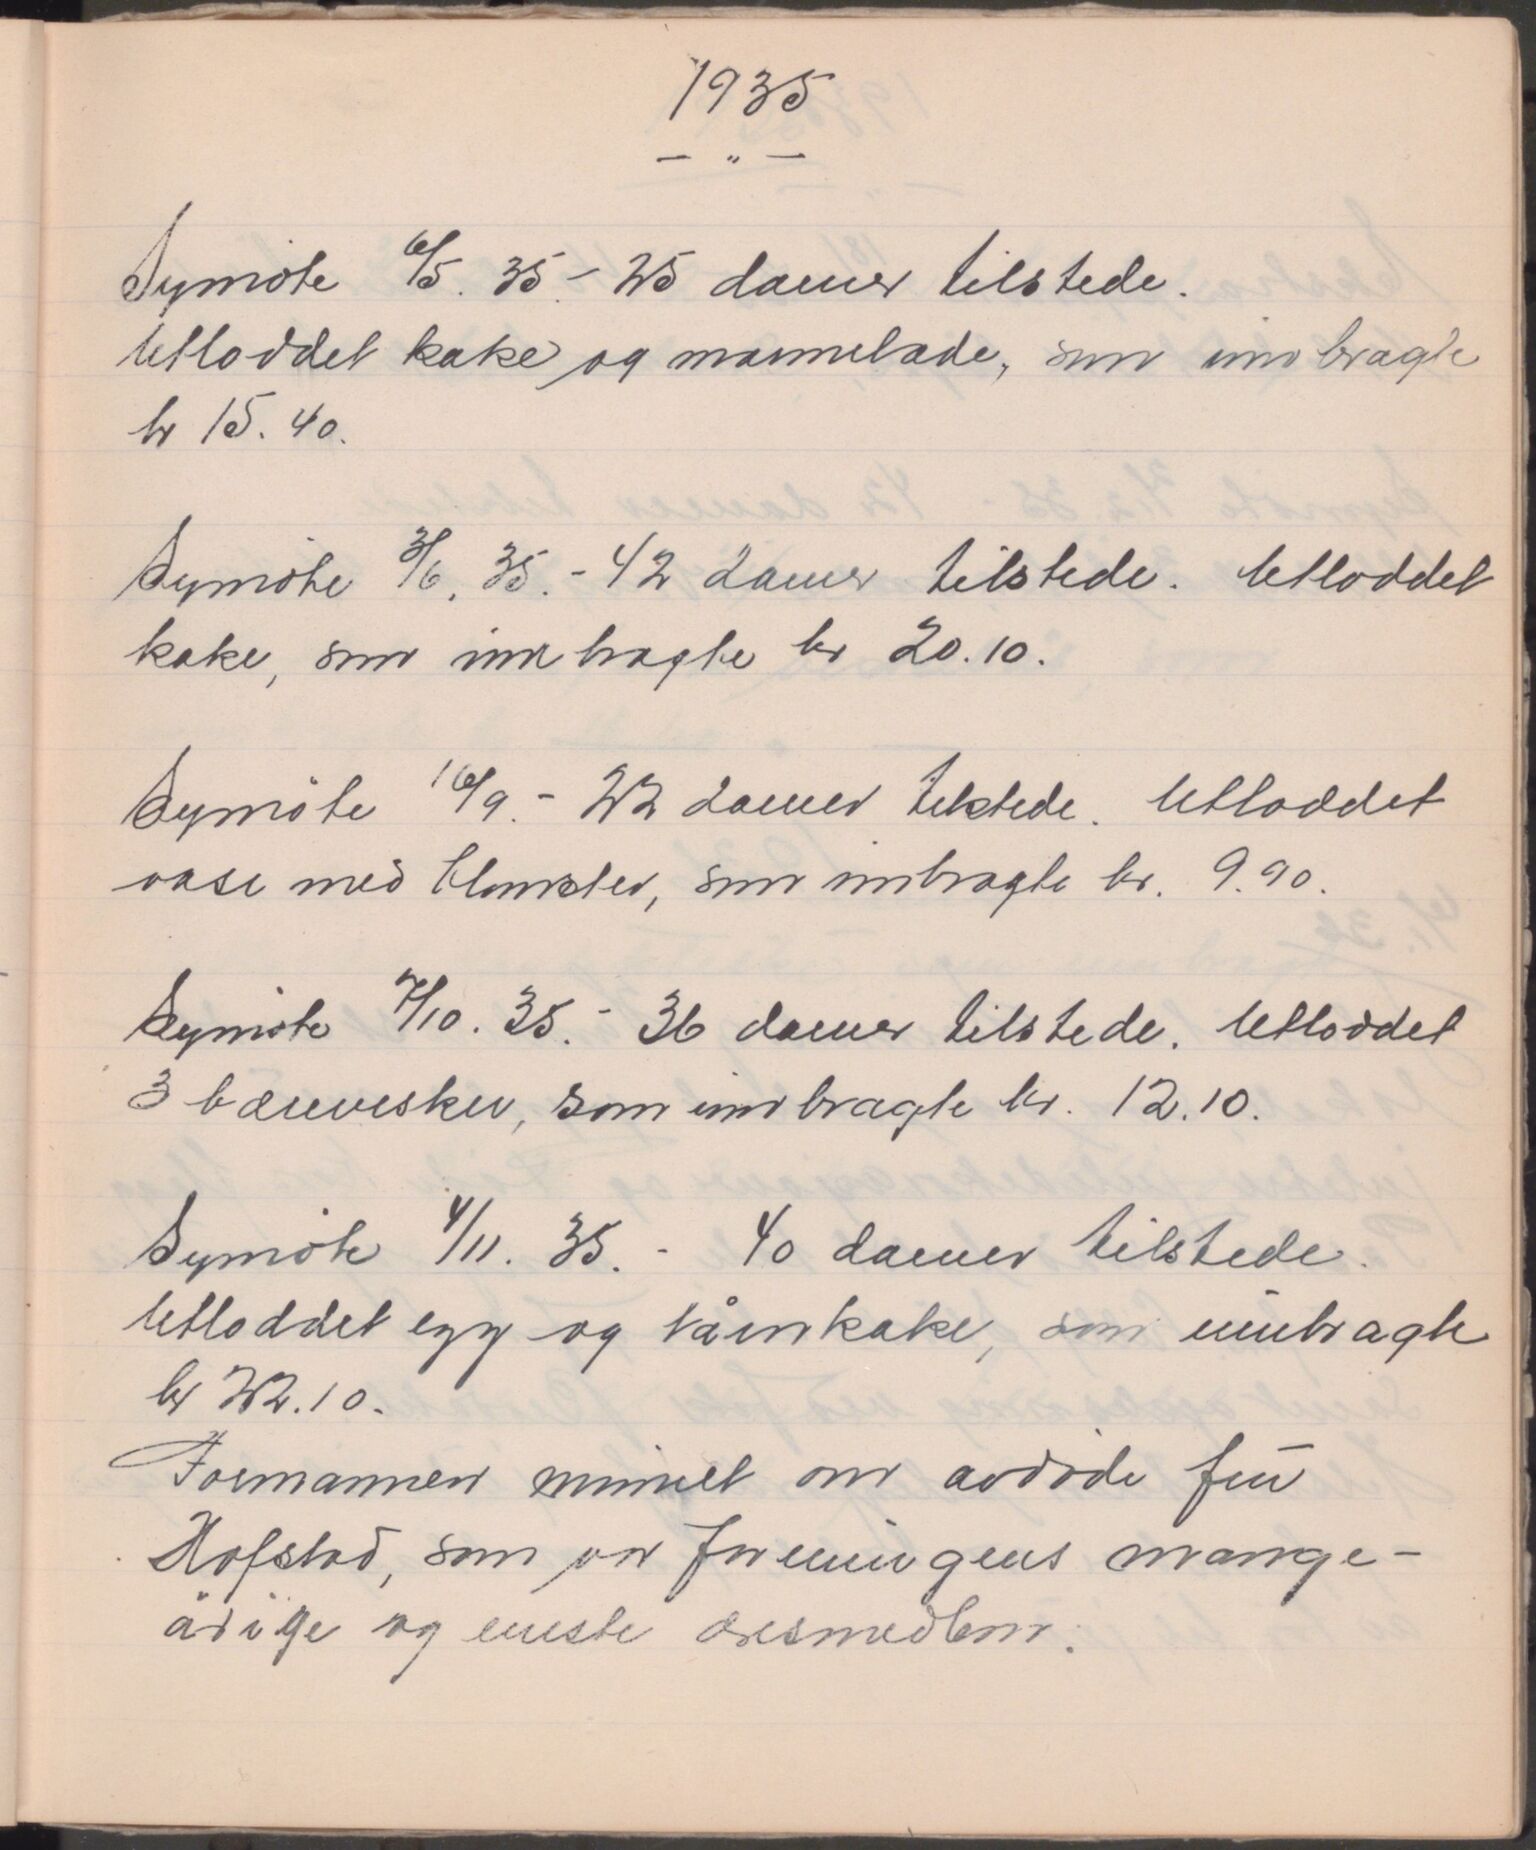 1935
— " —
Symöte 6/5. 35. - 25 damer tilstede.
Utloddet kake og marmelade, som innbragte
kr 15.40.
Symöte 3/6. 35. - 42 damer tilstede. Utloddet
kake, som innbragte kr 20.10.
Symöte 16/9. - 22 damer tilstede. Utloddet
vase med blomster, som innbragte kr. 9.90.
Symöte 7/10. 35. - 36 damer tilstede. Utloddet
3 bærevesker, som innbragte kr. 12.10.
Symöte 4/11. 35. - 40 damer tilstede.
Utloddet egg og tårnkake, som innbragte
kr 22.10.
Formannen minnet om avdöde fru
Hofstad, som var foreningens mange-
årige og eneste æresmedlem.